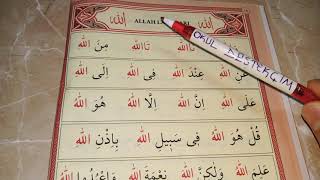 الله ALLAH الله
تَاللهِ تَاللهِ مِنَ اللهِ
عَنِ اللهِ عِنْدَ اللهِ فِى اللهِ اِلَى اللهِ
عَلَى اللهِ اِنَّ اللهَ اِلَّا اللهُ هُوَ اللهُ
قُلْ هُوَ اللهُ فِى سَبِيلِ اللهِ بِاِذْنِ اللهِ
عَلِمَ اللهُ وَلٰكِنَّ اللهَ نِعْمَةَ اللهِ وَاعْبُدُوا اللهَ
OKUL DESTEKÇİM